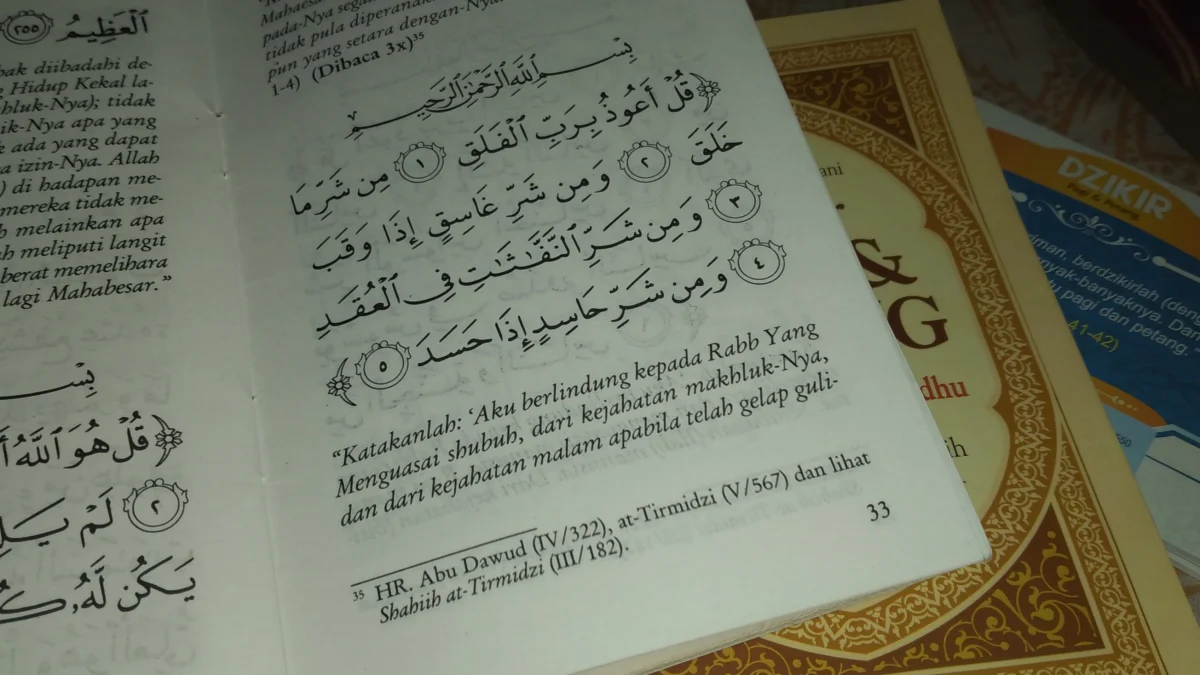 ٱلْعَظِيمُ ٢٥٥
diibadahi de-
Hidup Kekal la-
tidak
ik-Nya apa yang
ada yang dapat
izin-Nya. Allah
di hadapan me-
mereka tidak me-
melainkan apa
meliputi langit
berat memelihara
lagi Mahabesar.”
قُلْ هُوَ ٱللَّهُ
٢ لَمْ
يَكُن لَّهُۥ
pada-Nya
tidak pula
pun yang setara dengan-Nya.
1-4) (Dibaca 3x)³⁵
بِسْمِ ٱللَّهِ ٱلرَّحْمَٰنِ ٱلرَّحِيمِ
قُلْ أَعُوذُ بِرَبِّ ٱلْفَلَقِ ١ مِن شَرِّ مَا
خَلَقَ ٢ وَمِن شَرِّ غَاسِقٍ إِذَا وَقَبَ
٣ وَمِن شَرِّ ٱلنَّفَّٰثَٰتِ فِى ٱلْعُقَدِ
٤ وَمِن شَرِّ حَاسِدٍ إِذَا حَسَدَ ٥
“Katakanlah: ‘Aku berlindung kepada Rabb Yang
Menguasai shubuh, dari kejahatan makhluk-Nya,
dan dari kejahatan malam apabila telah gelap guli-
³⁵ HR. Abu Dawud (IV/322), at-Tirmidzi (V/567) dan lihat
Shahiih at-Tirmidzi (III/182).
33
&
G
DZIKIR
Pagi & Petang
berdzikirlah
pagi dan petang.
41-42)